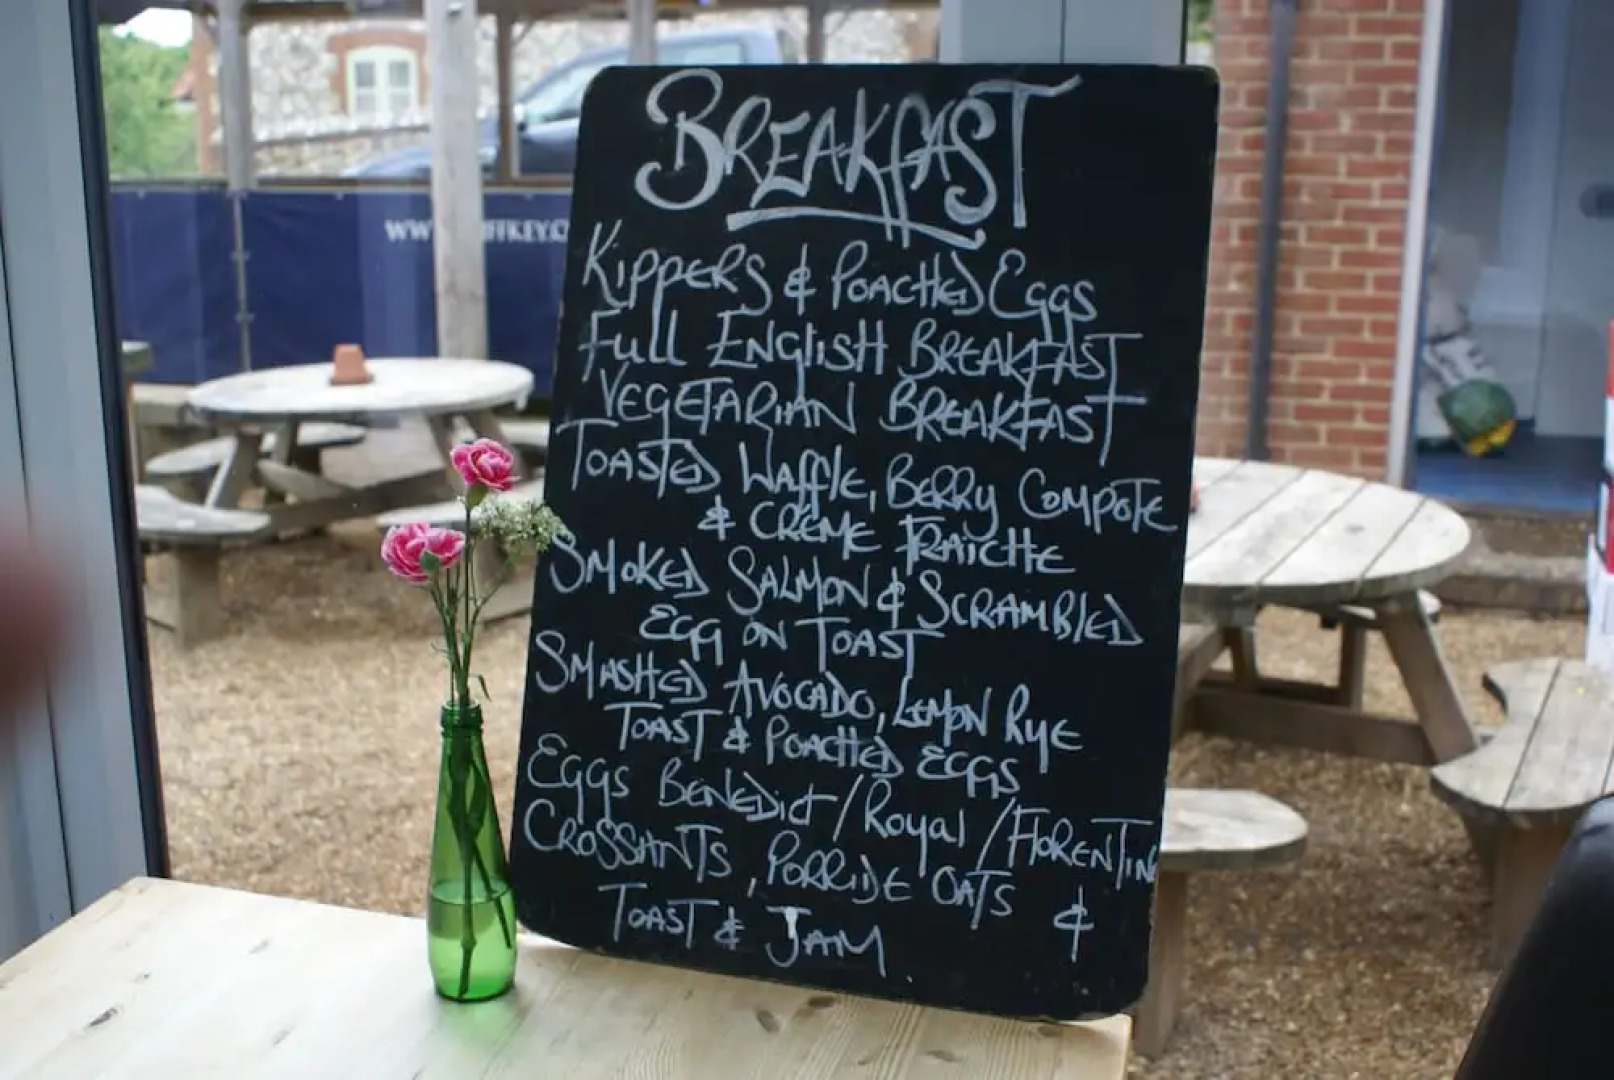 BREAKFAST
KIPPERS & POACHED EGGS
FUll ENGlISH BREAKFAST
VEGETARIAN BREAKFAST
TOASTED WAffle, BERRY COMPOTE
& CRÈME FRAICHE
SMOKED SALMON & SCRAMBlED
EGG ON TOAST
SMASHED AVOCADO, LEMON RYE
TOAST & POACHED EGGS
EGGS BENEDict / Royal / FlORENTINE
CROSSANTS, PORRIDE OATS &
TOAST & JAM.